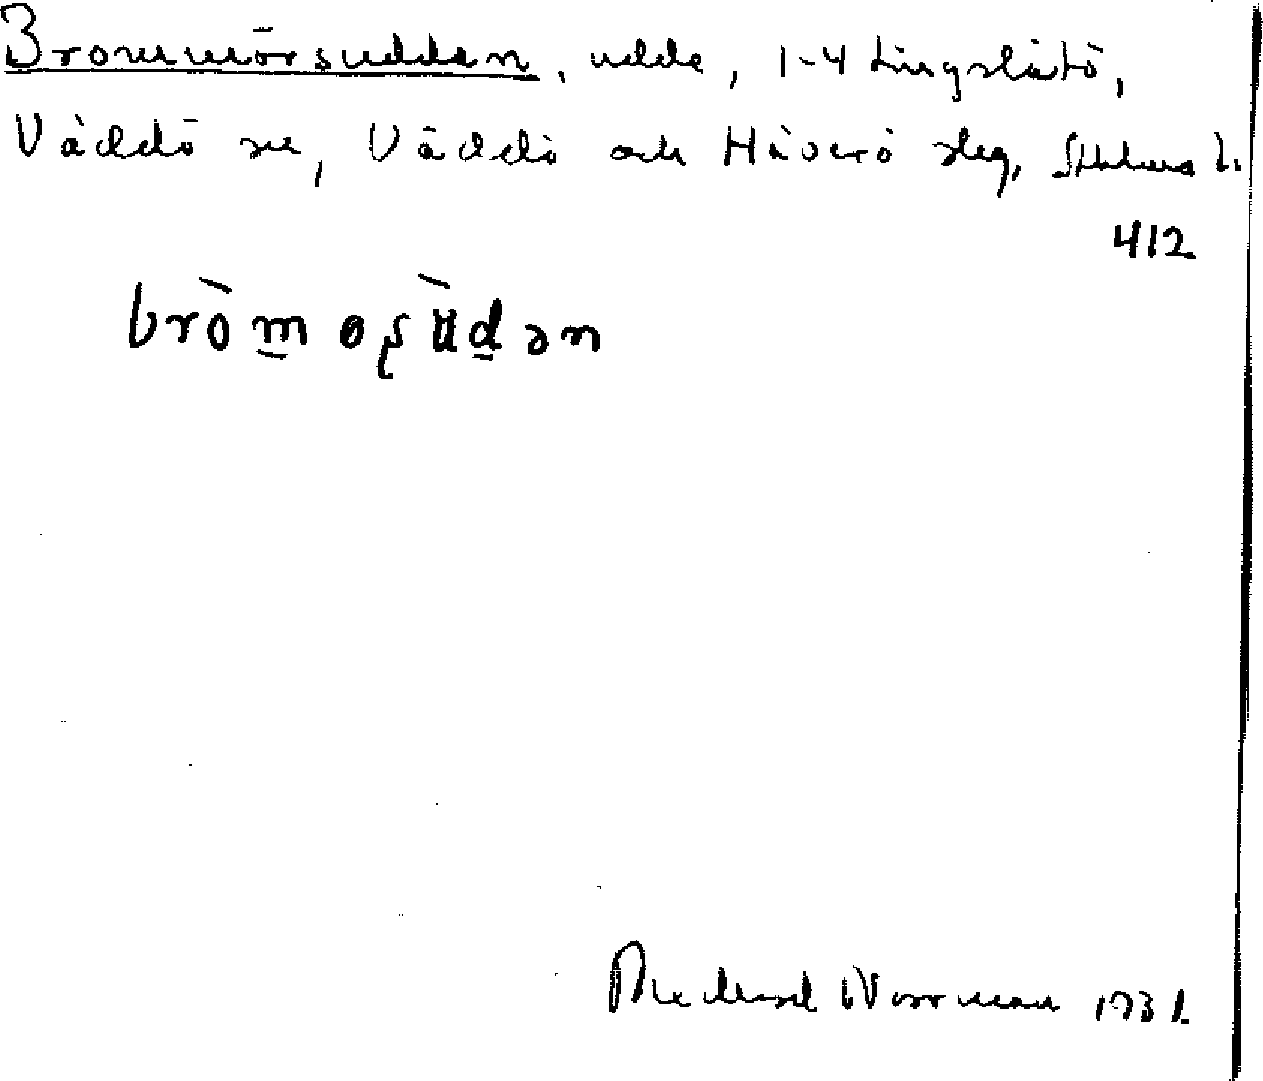 Brommörsudden, udde, 1-4 Tingslätö,
Väddö sn, Väddö och Häverö slg, Sthlms l.
412
bròmøṣùdən
Norrman 1931